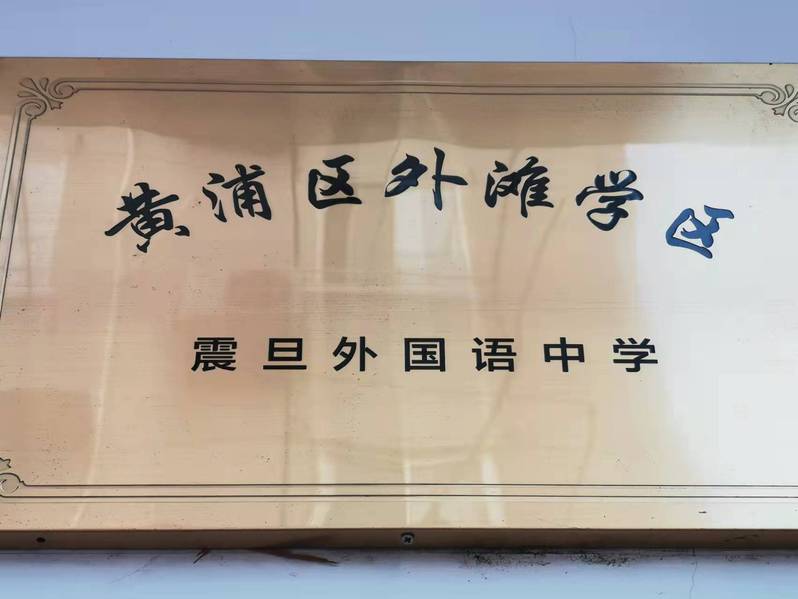 黄浦区外滩学区
震旦外国语中学